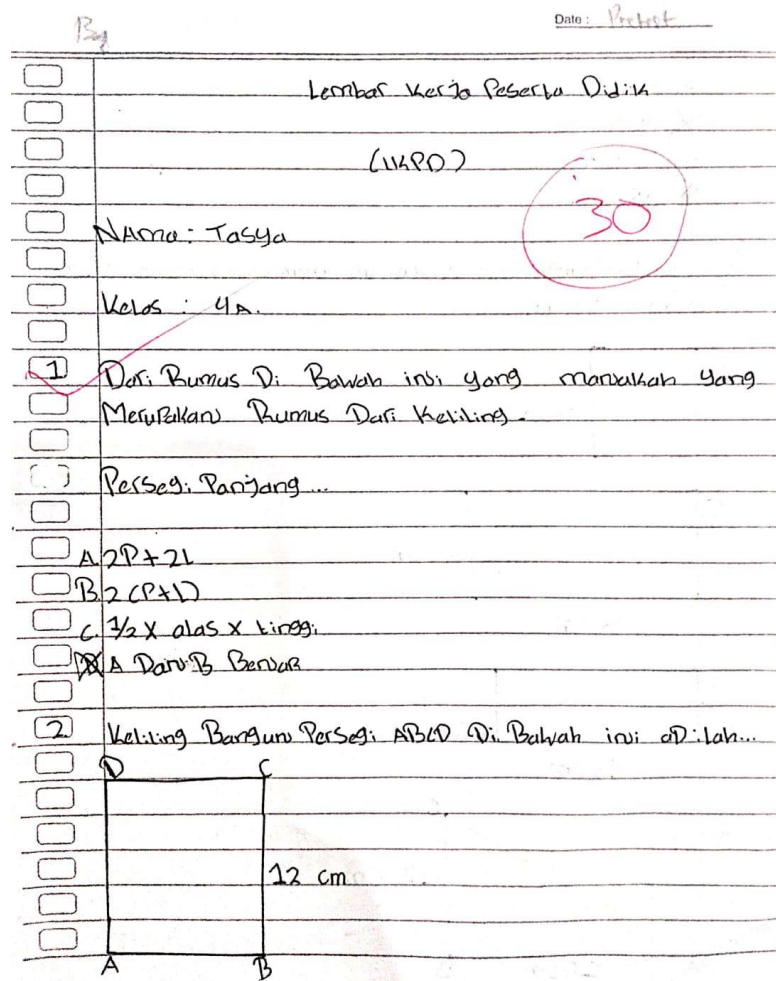 By
Date : Pretest
Lembar Kerja Peserta Didik
(LKPD)
30
Nama: Tasya
Kelas : 4A.
1 Dari Rumus Di Bawah ini yang manakah yang
Merupakan Rumus Dari Keliling.
Persegi Panjang...
A. 2P+2L
B. 2(P+L)
C. 1/2 X alas x tinggi
D A Dan B Benar
2 Keliling Bangun Persegi ABCD Di Bawah ini aDilah...
D C
12 cm
A B